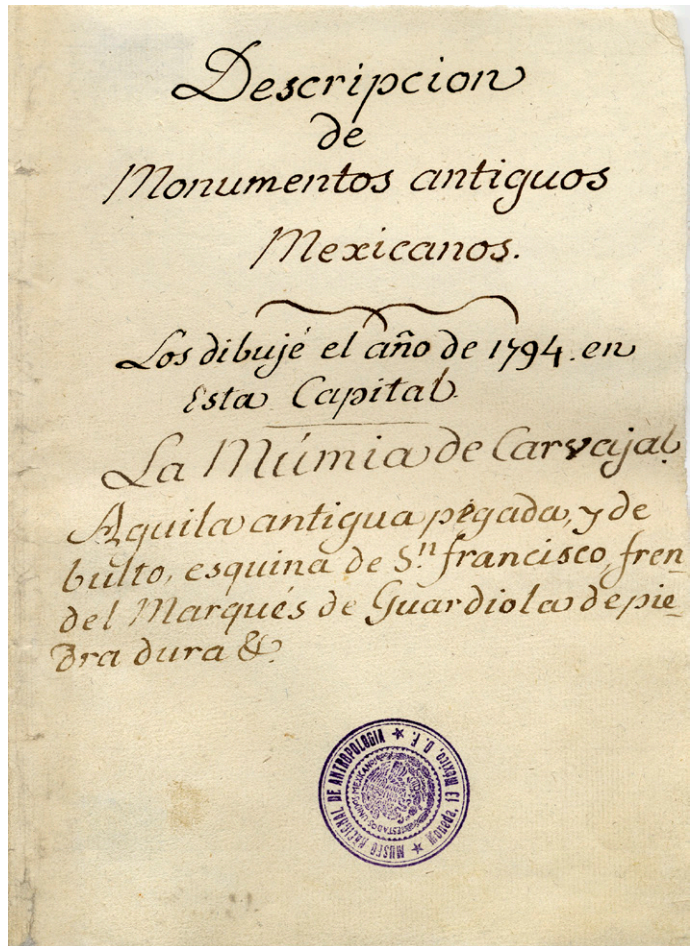 Descripcion
de
Monumentos antiguos
Mexicanos.
Los dibujé el año de 1794. en
Esta Capital.
La Múmia de Carvajal.
Aguila antigua pegada, y de
bulto, esquina de S.n francisco, fren
del Marqués de Guardiola de pie-
dra dura &.
MUSEO NACIONAL DE ANTROPOLOGIA ★ Moneda, 13 México, D. F. ★
ESTADOS UNIDOS MEXICANOS